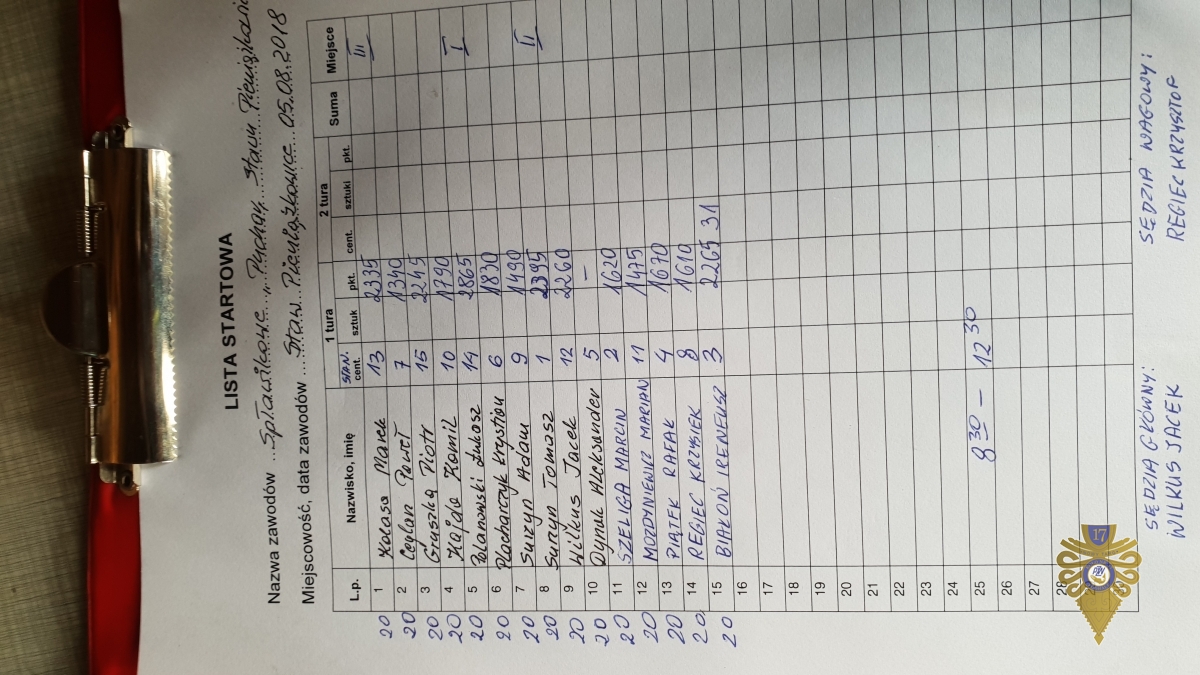 LISTA STARTOWA
Nazwa zawodów ... Spławikowe „Puchar Stawu Pieniążkowice
Miejscowość, data zawodów ... Staw Pieniążkowice 05.08.2018
L.p. Nazwisko, imię 1 tura 2 tura Suma Miejsce
STAN. cent. sztuk pkt. cent. sztuki pkt.
20 1 Kolasa Marek 13 2335 III
20 2 Ceglan Paweł 7 1340
20 3 Gruszka Piotr 15 2245
20 4 Hajda Kamil 10 1790 I
20 5 Polanowski Łukasz 14 2865
20 6 Placharczyk Krystian 6 1830
20 7 Surzyn Adam 9 1490 II
20 8 Surzyn Tomasz 1 2395
20 9 Wilkus Jacek 12 2260
20 10 Dynak Aleksander 5 –
20 11 SZELIGA MARCIN 2 1620
20 12 MOZDYNIEWICZ MARIAN 11 1475
20 13 PIĄTEK RAFAŁ 4 1670
20 14 REGIEC KRZYSIEK 8 1610
20 15 BIAŁOŃ IRENEUSZ 3 2265 31
16
17
18
19
20
21
22
23
24
25 8 30 – 12 30
26
27
28
SĘDZIA GŁÓWNY: SĘDZIA WAGOWY:
WILKUS JACEK REGIEC KRZYSZTOF
17